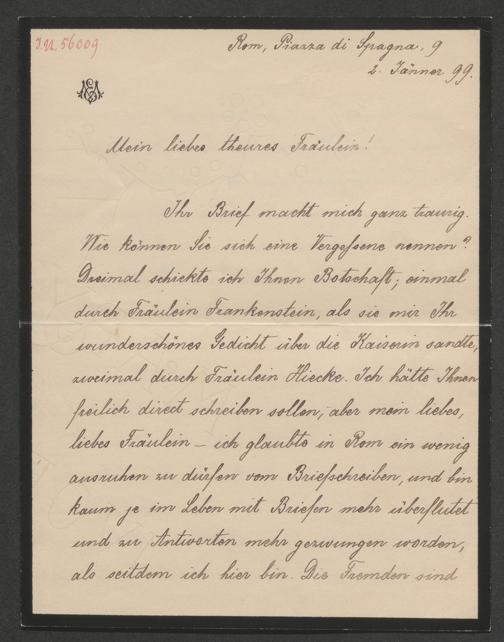 I.N. 56009
Rom, Piazza di Spagna, 9
2. Jänner 99.
Mein liebes theures Fräulein!
Ihr Brief macht mich ganz traurig.
Wie können Sie sich eine Vergessene nennen?
Dreimal schickte ich Ihnen Botschaft; einmal
durch Fräulein Frankenstein, als sie mir Ihr
wunderschönes Gedicht über die Kaiserin sandte,
zweimal durch Fräulein Hiecke. Ich hätte Ihnen
freilich direct schreiben sollen, aber mein liebes,
liebes Fräulein – ich glaubte in Rom ein wenig
ausruhen zu dürfen vom Briefschreiben, und bin
kaum je im Leben mit Briefen mehr überflutet
und zu Antworten mehr gezwungen worden,
als seitdem ich hier bin. Die Fremden sind